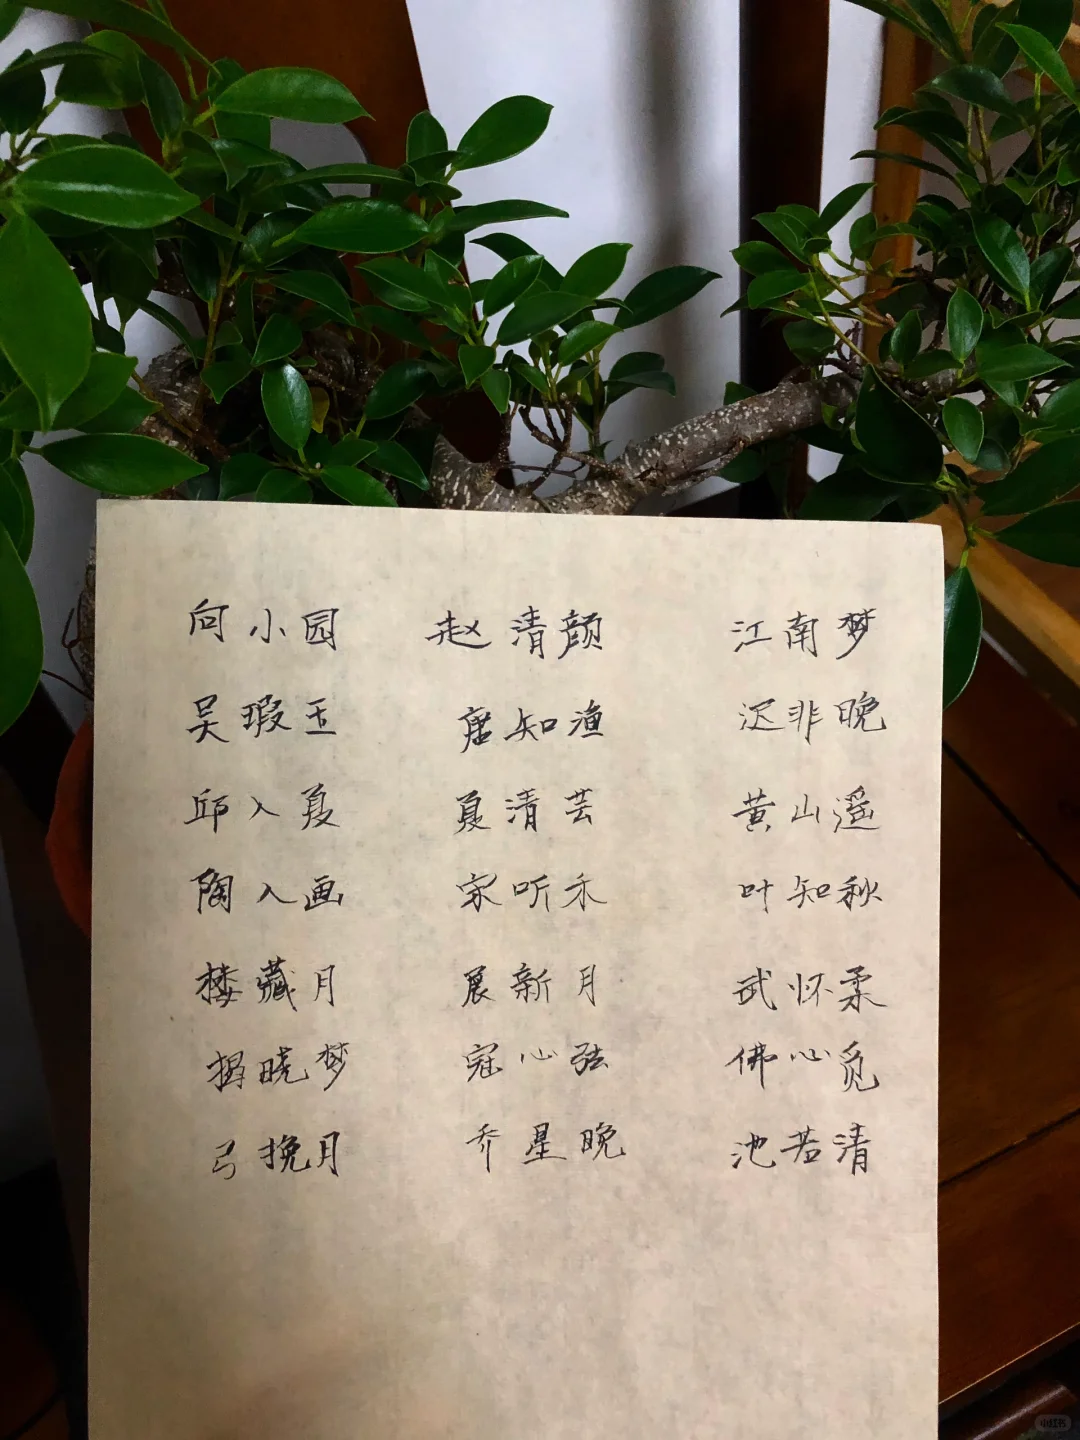 向小园 赵清颜 江南梦
吴瑕玉 唐知渔 迟非晚
邱入夏 夏清芸 黄山遥
陶入画 家听禾 叶知秋
楼藏月 展新月 武怀柔
揭晓梦 寇心弦 佛心觅
弓挽月 乔星晚 池若清
小红书